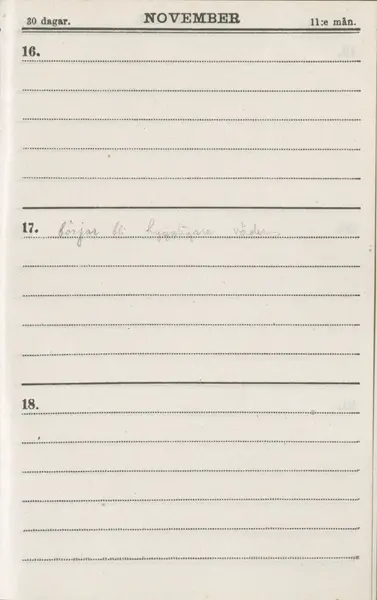 30 dagar. NOVEMBER 11:e mån.
16.
17. börjar bli hyggligare väder.
18.